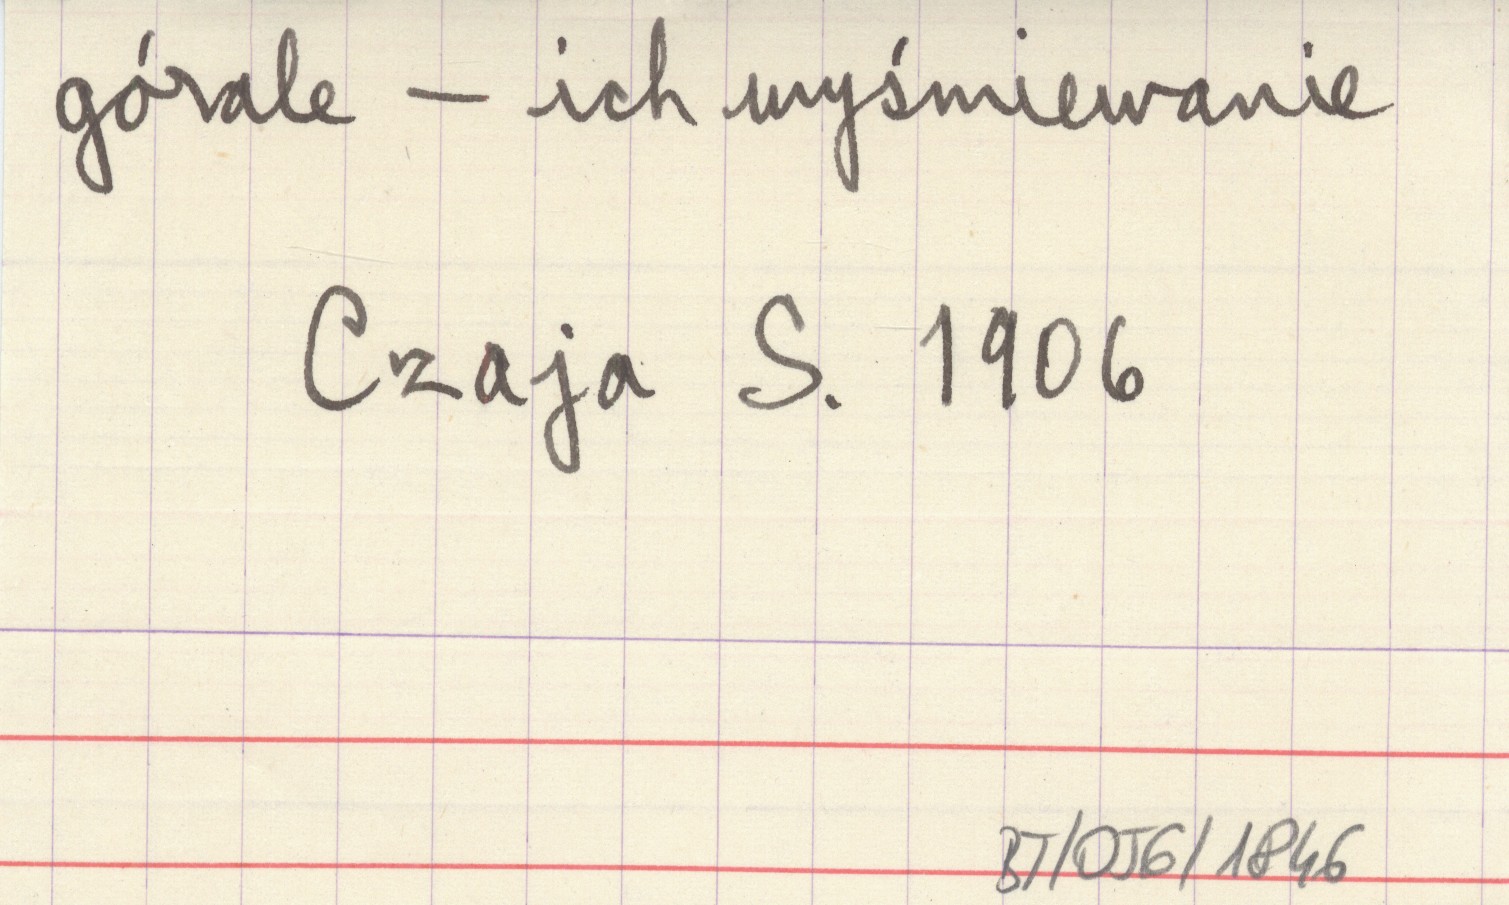 górale – ich wyśmiewanie
Czaja S. 1906
BT/OJG/1846